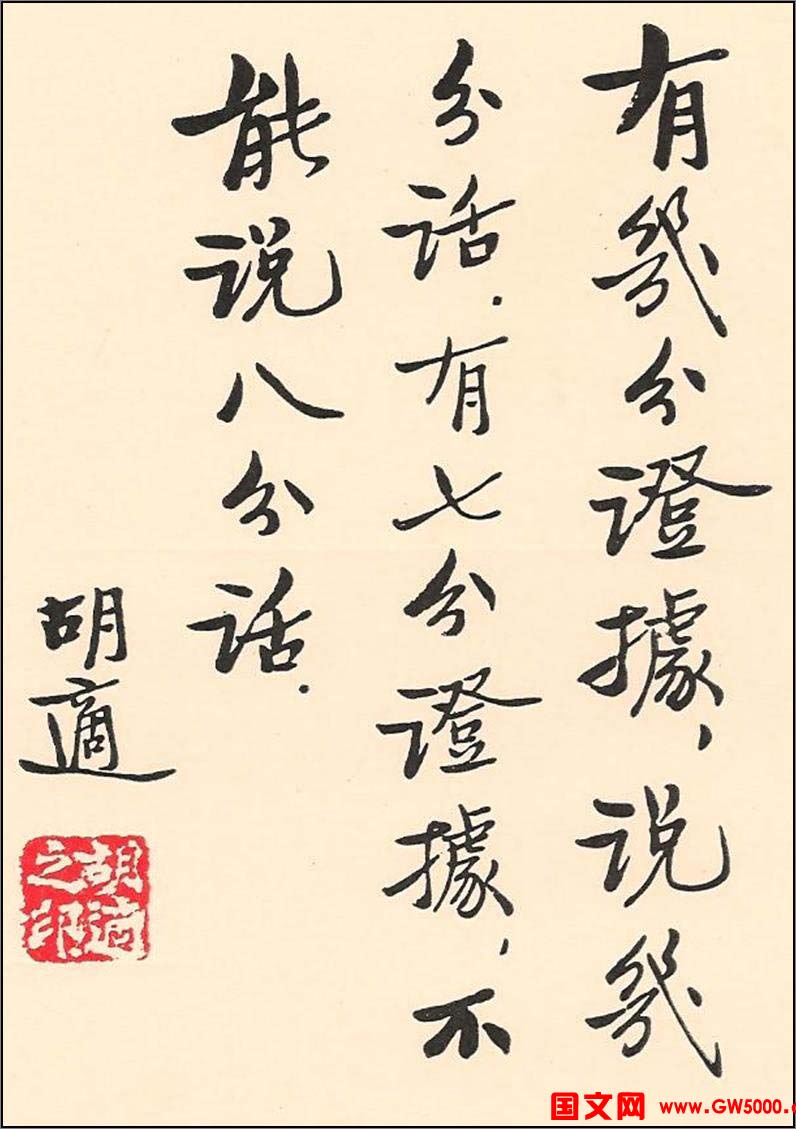 有幾分證據，说幾
分话．有七分證據，不
能说八分话．
胡適
胡適
之印
国文网 www.GW5000.c